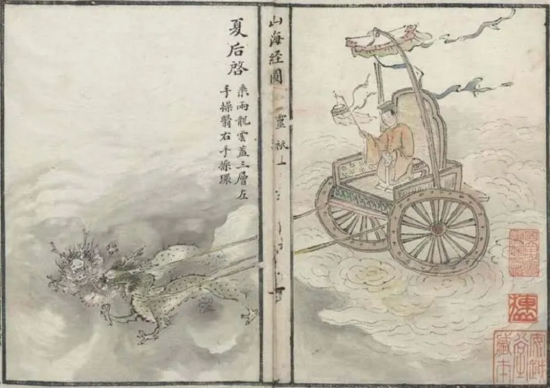 山海經圖
靈祇
夏后啓
乘兩龍雲蓋三層左
手操翳右手操環